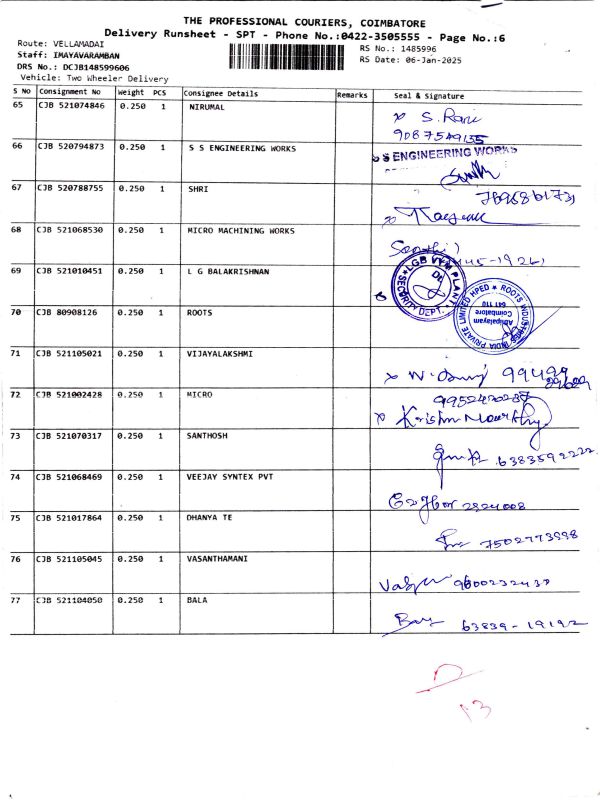 THE PROFESSIONAL COURIERS, COIMBATORE
Delivery Runsheet - SPT - Phone No.:0422-3505555 - Page No.:6
Route: VELLAMADAI
RS No.: 1485996
Staff: IMAYAVARAMBAN
RS Date: 06-Jan-2025
DRS No.: DCJB148599606
Vehicle: Two Wheeler Delivery
S No Consignment No Weight PCS Consignee Details Remarks Seal & Signature
65 CJB 521074846 0.250 1 NIRUMAL
x S. Rani
66 CJB 520794873 0.250 1 S S ENGINEERING WORKS
S ENGINEERING WORKS
67 CJB 520788755 0.250 1 SHRI
68 CJB 521068530 0.250 1 MICRO MACHINING WORKS
69 CJB 521010451 0.250 1 L G BALAKRISHNAN
LGB VPM PLANT
SECURITY DEPT.
70 CJB 80908126 0.250 1 ROOTS
ROOTS INDUSTRIES INDIA PRIVATE LIMITED HPED
Coimbatore
641 110
71 CJB 521105021 0.250 1 VIJAYALAKSHMI
72 CJB 521002428 0.250 1 MICRO
x Krishn Mourthy
73 CJB 521070317 0.250 1 SANTHOSH
6383592222
74 CJB 521068469 0.250 1 VEEJAY SYNTEX PVT
2924008
75 CJB 521017864 0.250 1 DHANYA TE
7502773998
76 CJB 521105045 0.250 1 VASANTHAMANI
9600232437
77 CJB 521104050 0.250 1 BALA
63839-19192
13